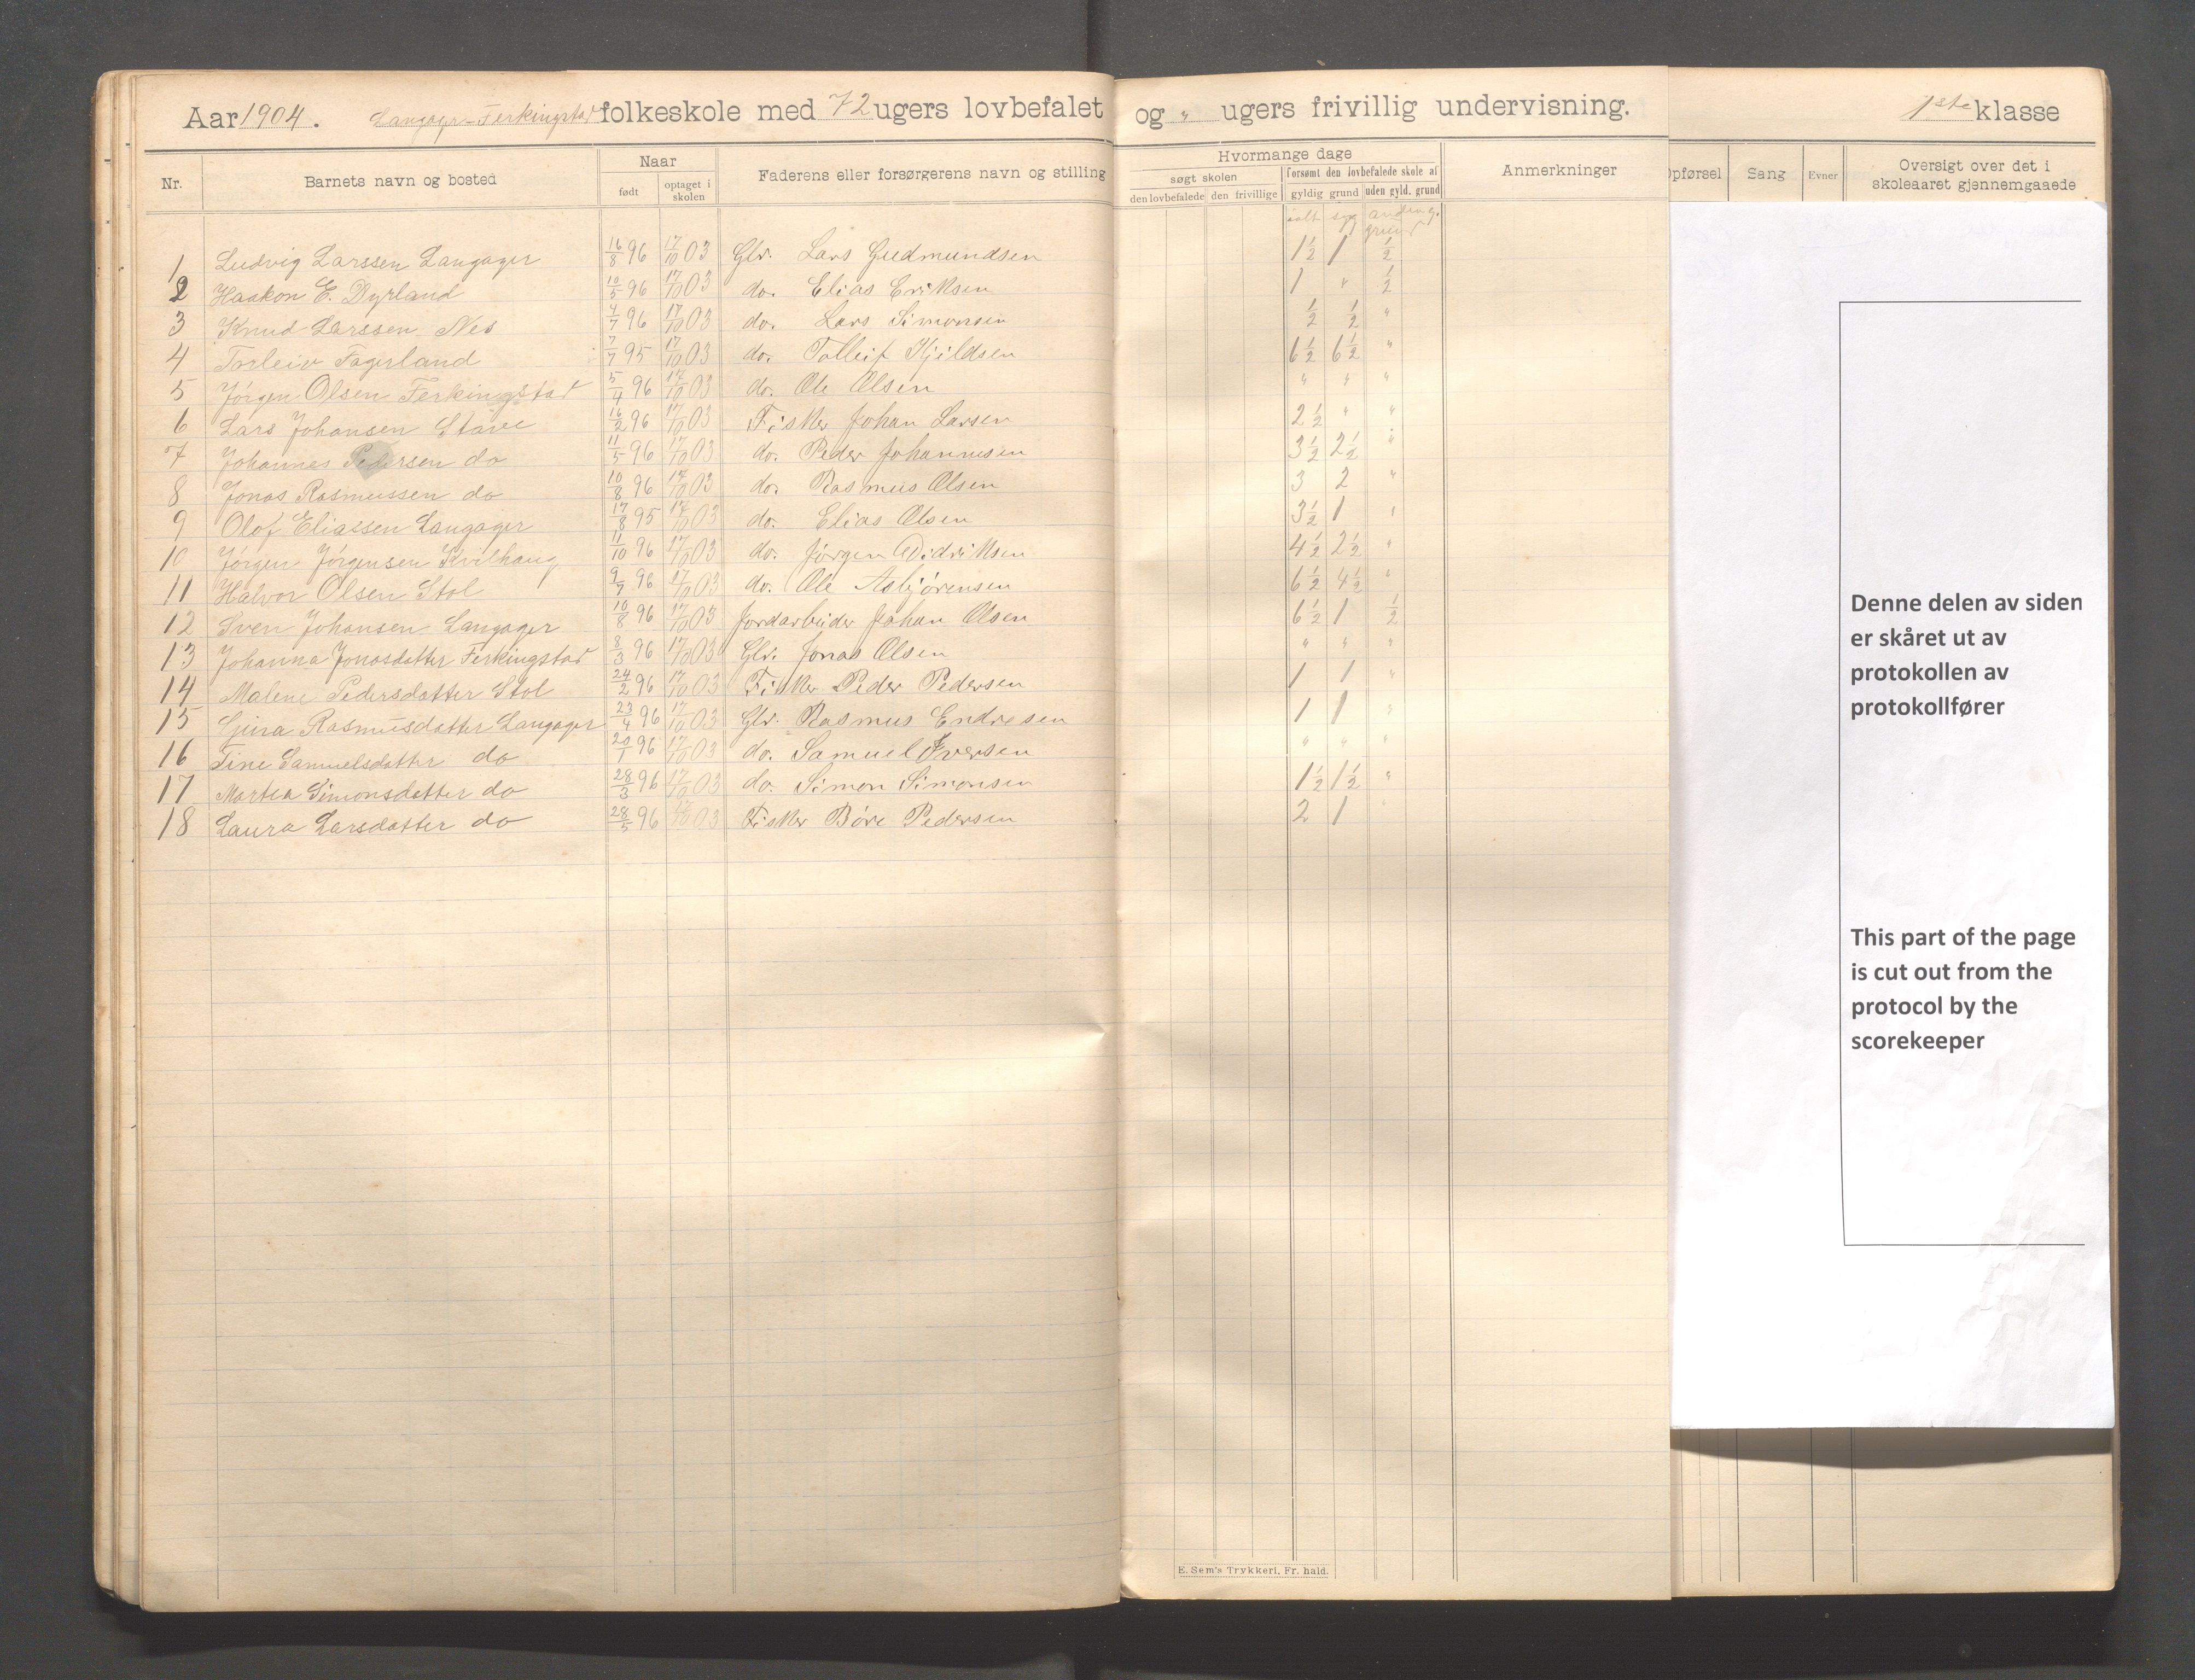 Aar 1904. Langager-Ferkingstad folkeskole med 72 ugers lovbefalet og " ugers frivillig undervisning. 1ste klasse
Nr. Barnets navn og bosted Naar Faderens eller forsørgerens navn og stilling Hvormange dage Anmerkninger Opførsel Sang Evner Oversigt over det i
skoleaaret gjennemgaaede
født optaget i skolen søgt skolen forsømt den lovbefalede skole af
den lovbefalede den frivillige gyldig grund uden gyld. grund
ialt syg
1 Ludvig Larssen Langager 16/8 96 17/10 03 Glr. Lars Gudmundsen 1 1/2 1 1/2
2 Haakon E. Dyrland 10/5 96 17/10 03 do. Elias Eriksen 1 " 1/2
3 Knud Larssen Nes 4/7 96 17/10 03 do. Lars Simonsen 1/2 1/2 "
4 Torleiv Fagerland 7/7 95 17/10 03 do. Tolleif Kjildsen 6 1/2 6 1/2 "
5 Jørgen Olsen Ferkingstad 5/4 96 17/10 03 do. Ole Olsen " " "
6 Lars Johansen Stave 16/2 96 17/10 03 Fisker Johan Larsen 2 1/2 " "
7 Johannes Pedersen do 11/5 96 17/10 03 do. Peder Johannesen 3 1/2 2 1/2 "
8 Jonas Rasmussen do 10/8 96 17/10 03 do. Rasmus Olsen 3 2 "
9 Olof Eliassen Langager 17/8 95 17/10 03 do. Elias Olsen 3 1/2 1 "
10 Jørgen Jørgensen Kvilhaug 11/10 96 17/10 03 do. Jørgen Didriksen 4 1/2 2 1/2 "
11 Halvor Olsen Stol 9/7 96 17/10 03 do. Ole Asbjørensen 6 1/2 4 1/2 "
12 Sven Johansen Langager 10/8 96 17/10 03 Jordarbeider Johan Olsen 6 1/2 1 1/2
13 Johanna Jonasdatter Ferkingstad 8/3 96 17/10 03 Glr. Jonas Olsen " " "
14 Malene Pedersdatter Stol 24/2 96 17/10 03 Fisker Peder Pedersen 1 1 "
15 Rasmusdatter Langager 23/4 96 17/10 03 Glr. Rasmus Endresen 1 1 "
16 Tine Samuelsdatter do 20/1 96 17/10 03 do. Samuel Iversen " " "
17 Martea Simonsdatter do 28/3 96 17/10 03 do. Simon Simonsen 1 1/2 1 1/2 "
18 Laura Larsdatter do 28/5 96 17/10 03 Fisker Børe Pedersen 2 1 "
E. Sem's Trykkeri, Fr. hald.
Denne delen av siden
er skåret ut av
protokollen av
protokollfører
This part of the page
is cut out from the
protocol by the
scorekeeper